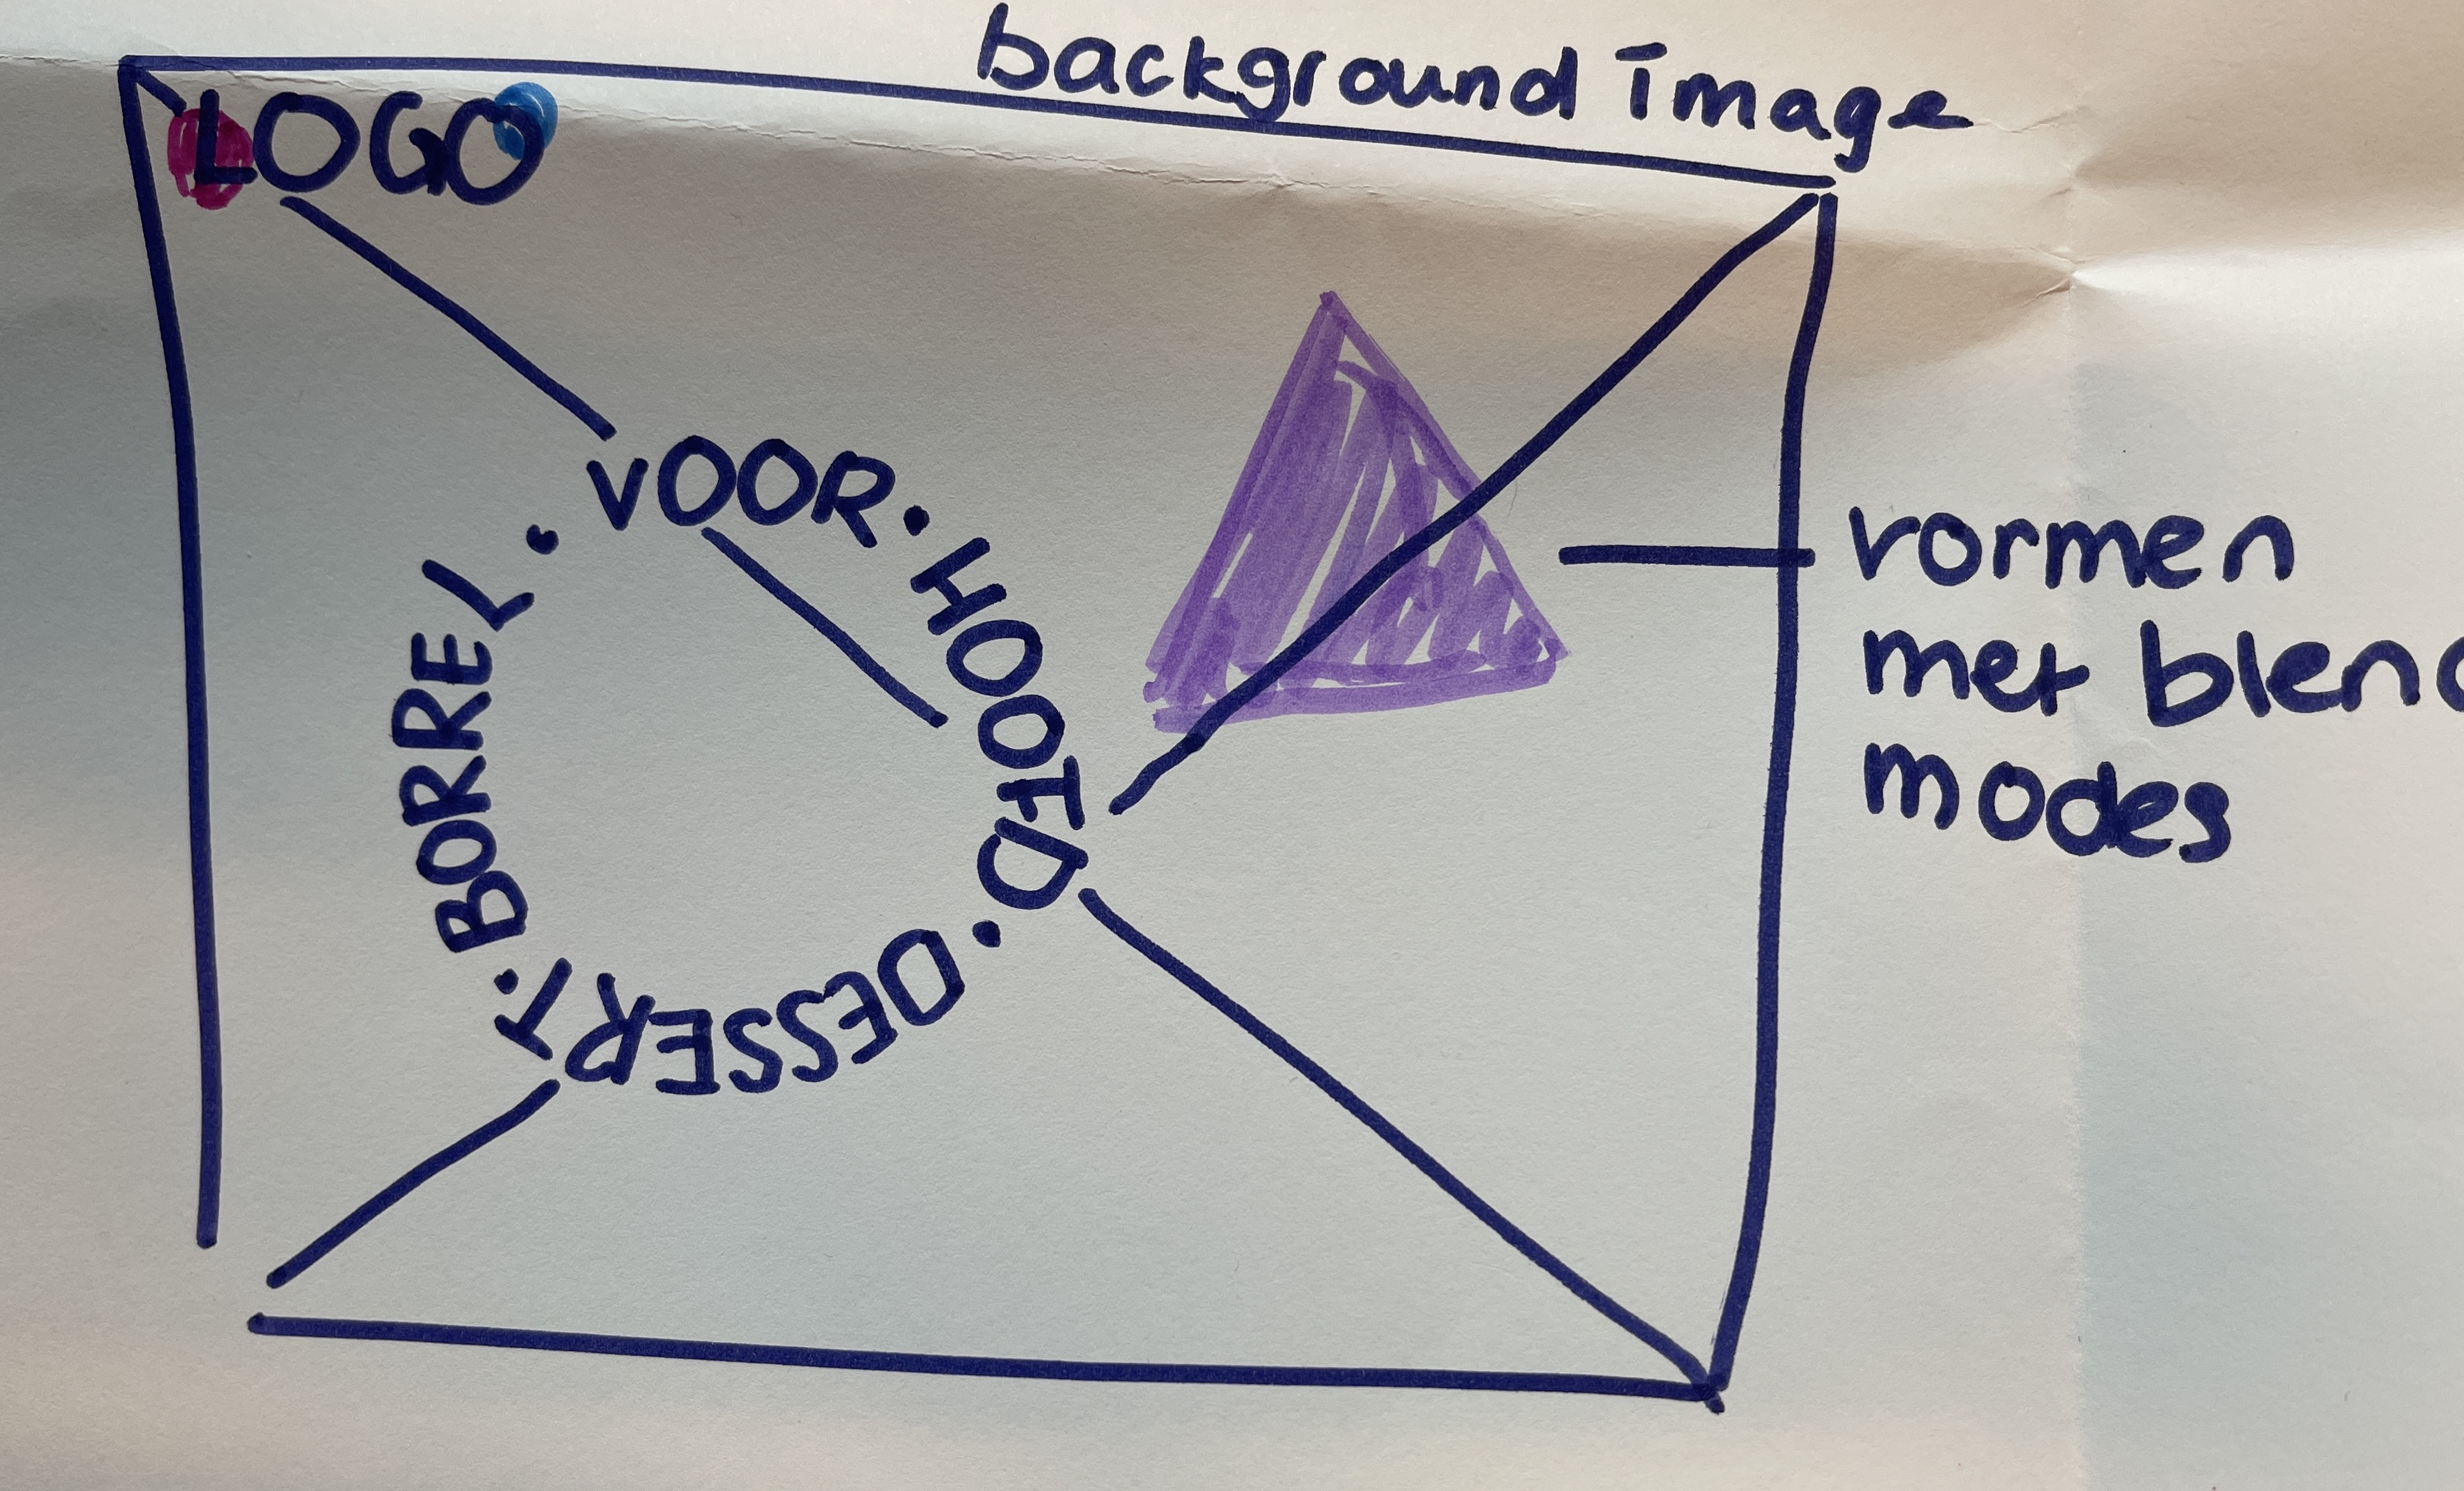 background image
LOGO
VOOR · HOOFD · DESSERT · BORREL ·
vormen
met blend
modes